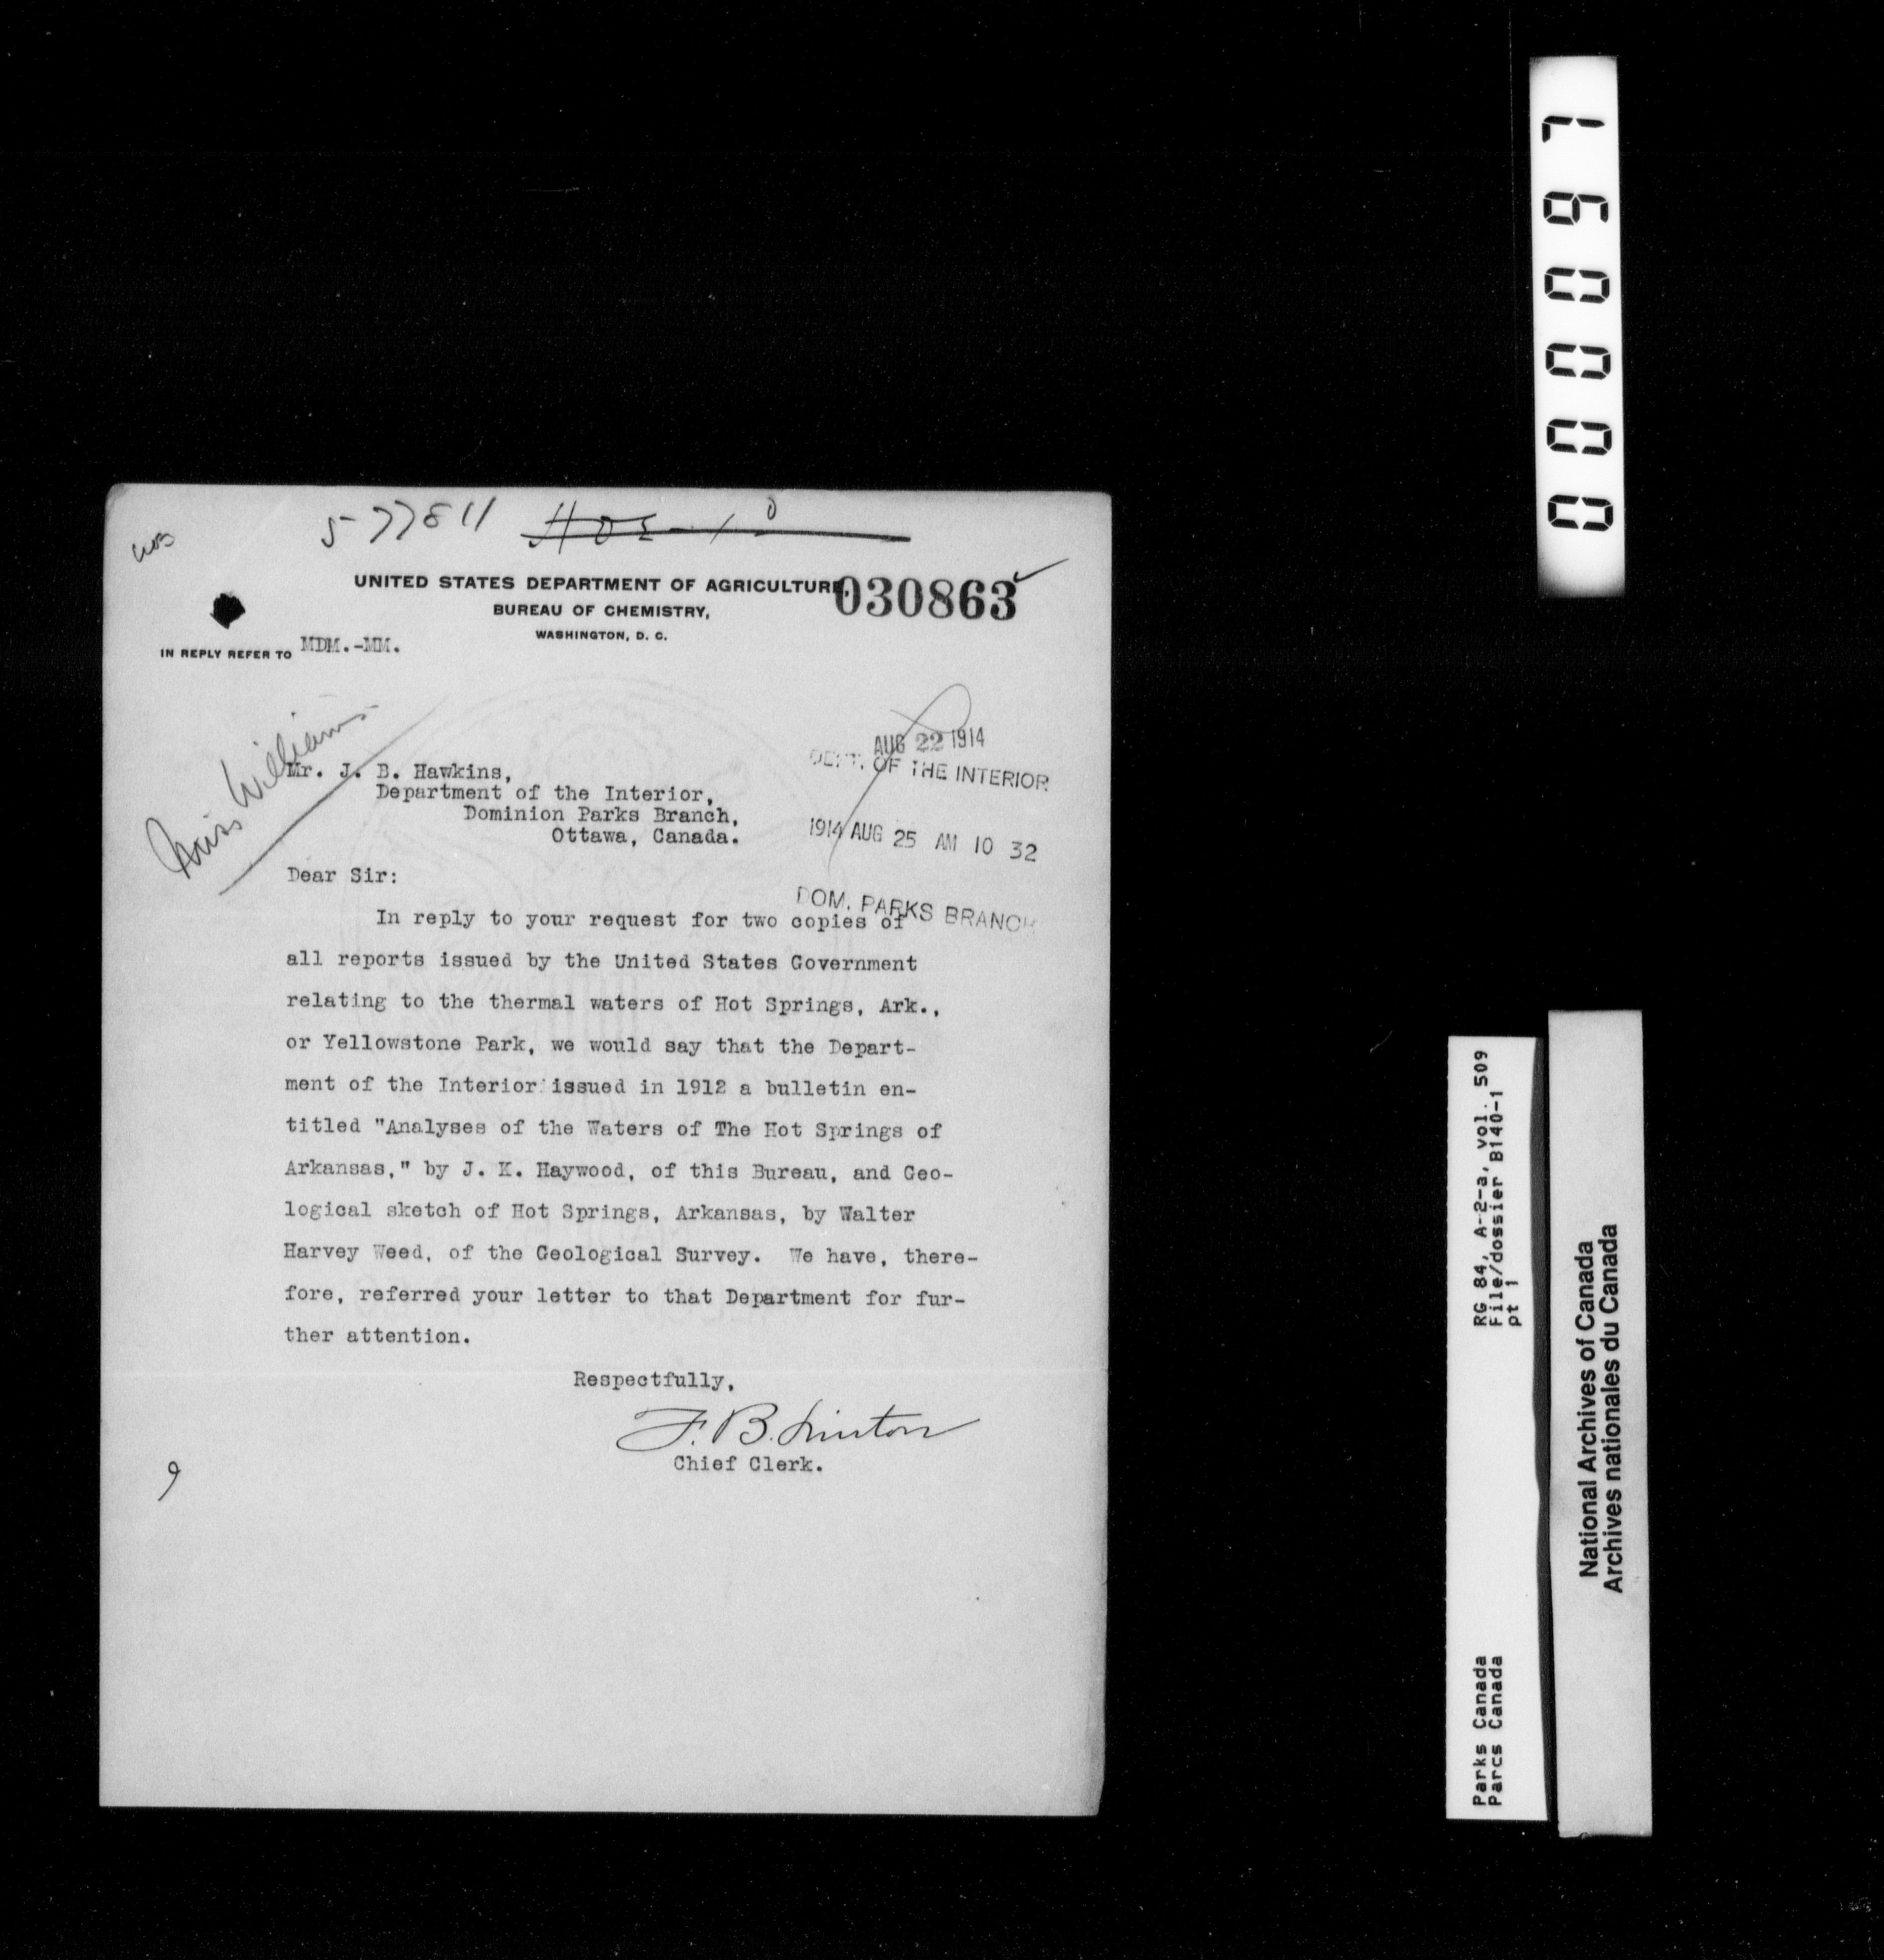 577811
UNITED STATES DEPARTMENT OF AGRICULTURE,
030863
BUREAU OF CHEMISTRY,
WASHINGTON, D. C.
IN REPLY REFER TO MDM.-MM.
Miss Williams
AUG 22 1914
DEPT. OF THE INTERIOR
1914 AUG 25 AM 10 32
DOM. PARKS BRANCH
Mr. J. B. Hawkins,
Department of the Interior,
Dominion Parks Branch,
Ottawa, Canada.
Dear Sir:
In reply to your request for two copies of
all reports issued by the United States Government
relating to the thermal waters of Hot Springs, Ark.,
or Yellowstone Park, we would say that the Depart-
ment of the Interior issued in 1912 a bulletin en-
titled "Analyses of the Waters of The Hot Springs of
Arkansas," by J. K. Haywood, of this Bureau, and Geo-
logical sketch of Hot Springs, Arkansas, by Walter
Harvey Weed, of the Geological Survey. We have, there-
fore, referred your letter to that Department for fur-
ther attention.
Respectfully,
F. B. Linton
Chief Clerk.
9
000097
RG 84, A-2-a, vol. 509
File/dossier B140-1
pt 1
Parks Canada
Parcs Canada
National Archives of Canada
Archives nationales du Canada